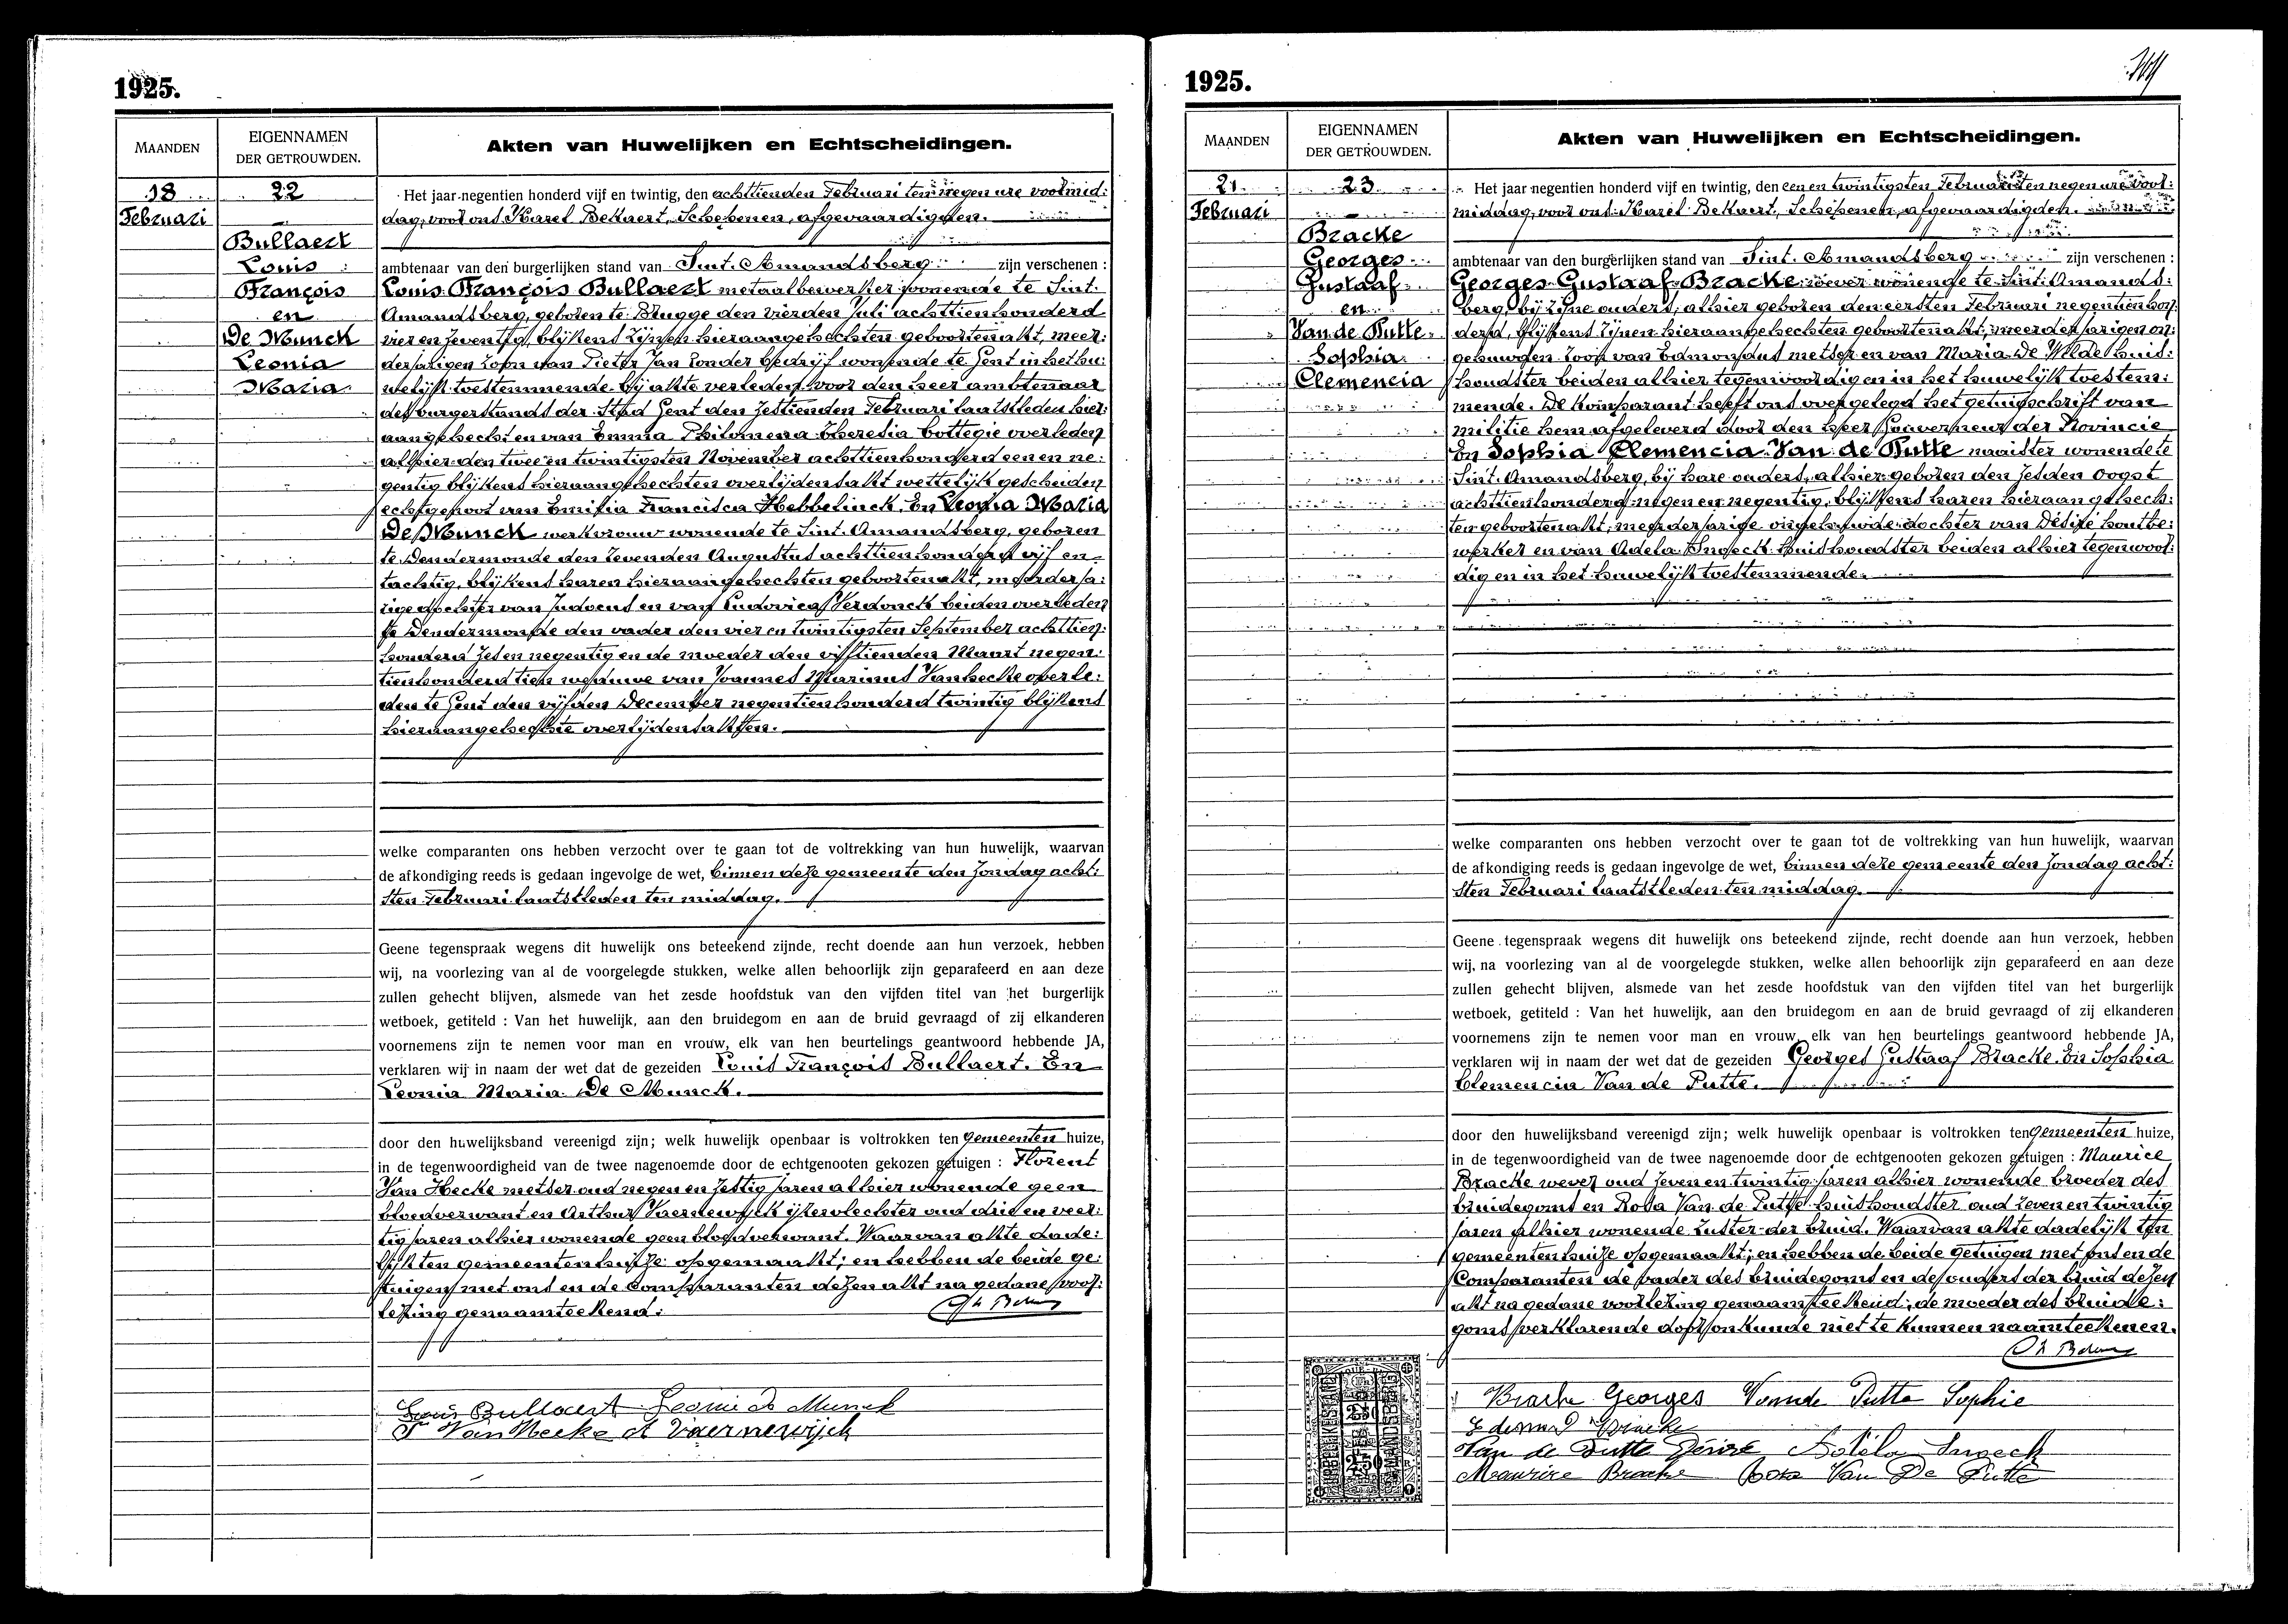 1925.
MAANDEN
EIGENNAMEN
DER GETROUWDEN.
Akten van Huwelijken en Echtscheidingen.
18
Februari
22
Bullaert
Louis
François
en
De Munck
Leonia
Maria
Het jaar negentien honderd vijf en twintig, den achttienden Februari ten negen ure voormid:
dag, voor ons Karel Bekaert, Schepenen, afgevaardigden.
ambtenaar van den burgerlijken stand van Sint. Amandsberg zijn verschenen :
Louis François Bullaert metaalbewerker wonende te Sint.
Amandsberg, geboren te Brugge den vierden Juli achttienhonderd
vier en zeventig, blijkens zijnen hieraangehechten geboortenakt, meer:
derjarigen zoon van Pieter Jan zonder bedrijf wonende te Gent in het hu:
welijk toestemmende bij akte verleden voor den heer ambtenaar
des burgerstands der Stad Gent den zestienden Februari laatstleden hier:
aangehecht en van Emma Philomena Theresia Cottegie overleden
alhier den twee en twintigsten November achttienhonderd een en ne:
gentig blijkens hieraangehechten overlijdensakt wettelijk gescheiden
echtgenoot van Emilia Francisca Hebbelinck, En Leonia Maria
De Munck werkvrouw wonende te Sint. Amandsberg, geboren
te Dendermonde den zevenden Augustus achttienhonderd vijf en
tachtig, blijkens haren hieraangehechten geboortenakt, meerderja:
rige dochter van Judocus en van Ludovica Verdonck beiden overleden
te Dendermonde den vader den vier en twintigsten September achttien:
honderd zes en negentig en de moeder den vijftienden Maart negen:
tienhonderd tien weduwe van Joannes Marinus Vanhecke overle:
den te Gent den vijfden December negentienhonderd twintig blijkens
hieraangehechte overlijdensakten.
welke comparanten ons hebben verzocht over te gaan tot de voltrekking van hun huwelijk, waarvan
de afkondiging reeds is gedaan ingevolge de wet, binnen deze gemeente den Zondag acht:
sten Februari laatstleden ten middag.
Geene tegenspraak wegens dit huwelijk ons beteekend zijnde, recht doende aan hun verzoek, hebben
wij, na voorlezing van al de voorgelegde stukken, welke allen behoorlijk zijn geparafeerd en aan deze
zullen gehecht blijven, alsmede van het zesde hoofdstuk van den vijfden titel van het burgerlijk
wetboek, getiteld : Van het huwelijk, aan den bruidegom en aan de bruid gevraagd of zij elkanderen
voornemens zijn te nemen voor man en vrouw, elk van hen beurtelings geantwoord hebbende JA,
verklaren wij in naam der wet dat de gezeiden Louis François Bullaert. En
Leonia Maria De Munck.
door den huwelijksband vereenigd zijn; welk huwelijk openbaar is voltrokken ten gemeenten huize,
in de tegenwoordigheid van de twee nagenoemde door de echtgenooten gekozen getuigen : Florent
Van Hecke metser oud negen en zestig jaren alhier wonende geen
bloedverwant en Arthur Vaernewyck ijzervlechter oud drie en veer:
tig jaren alhier wonende geen bloedverwant. Waarvan akte dade:
lijk ten gemeentenhuize opgemaakt; en hebben de beide ge:
tuigen met ons en de Comparanten dezen akt na gedane voor:
lezing genaamteekend.
Louis Bullaert Leonie De Munck
F Van Hecke A Vaernewijck
1925.
MAANDEN
EIGENNAMEN
DER GETROUWDEN.
Akten van Huwelijken en Echtscheidingen.
21
Februari
23
Bracke
Georges
Gustaaf
en
Van de Putte
Sophia
Clemencia
Het jaar negentien honderd vijf en twintig, den een en twintigsten Februari ten negen ure voor:
middag, voor ons Karel Bekaert, Schepenen, afgevaardigden.
ambtenaar van den burgerlijken stand van Sint. Amandsberg zijn verschenen :
Georges Gustaaf Bracke wever wonende te Sint. Amands:
berg, bij zijne ouders, alhier geboren den eersten Februari negentienhon:
derd, blijkens zijnen hieraangehechten geboortenakt, meerderjarigen on:
gehuwden zoon van Edmondus metser en van Maria De Wilde huis:
houdster beiden alhier tegenwoordig en in het huwelijk toestem:
mende. De Komparant heeft ons overgelegd het getuigschrift van
militie hem afgeleverd door den heer Gouverneur der Provincie
En Sophia Clemencia Van de Putte naaister wonende te
Sint. Amandsberg, bij hare ouders, alhier geboren den zesden Oogst
achttienhonderd negen en negentig, blijkens haren hieraangehech:
ten geboortenakt, meerderjarige ongehuwde dochter van Désiré houtbe:
werker en van Adela Snoeck huishoudster beiden alhier tegenwoor:
dig en in het huwelijk toestemmende.
welke comparanten ons hebben verzocht over te gaan tot de voltrekking van hun huwelijk, waarvan
de afkondiging reeds is gedaan ingevolge de wet, binnen deze gemeente den Zondag acht:
sten Februari laatstleden ten middag.
Geene tegenspraak wegens dit huwelijk ons beteekend zijnde, recht doende aan hun verzoek, hebben
wij, na voorlezing van al de voorgelegde stukken, welke allen behoorlijk zijn geparafeerd en aan deze
zullen gehecht blijven, alsmede van het zesde hoofdstuk van den vijfden titel van het burgerlijk
wetboek, getiteld : Van het huwelijk, aan den bruidegom en aan de bruid gevraagd of zij elkanderen
voornemens zijn te nemen voor man en vrouw, elk van hen beurtelings geantwoord hebbende JA,
verklaren wij in naam der wet dat de gezeiden Georges Gustaaf Bracke. En Sophia
Clemencia Van de Putte.
door den huwelijksband vereenigd zijn; welk huwelijk openbaar is voltrokken ten gemeenten huize,
in de tegenwoordigheid van de twee nagenoemde door de echtgenooten gekozen getuigen : Maurice
Bracke wever oud zeven en twintig jaren alhier wonende broeder des
bruidegoms en Rosa Van de Putte huishoudster oud zeven en twintig
jaren alhier wonende zuster der bruid. Waarvan akte dadelijk ten
gemeentenhuize opgemaakt; en hebben de beide getuigen met ons en de
Comparanten de vader des bruidegoms en de ouders der bruid dezen
akt na gedane voorlezing genaamteekend; de moeder des bruide:
goms verklarende door onkunde niet te kunnen naamteekenen.
Bracke Georges Vande Putte Sophie
Edmond Bracke
Van de Putte Désiré Adela Snoeck
Maurice Bracke Rosa Van De Putte